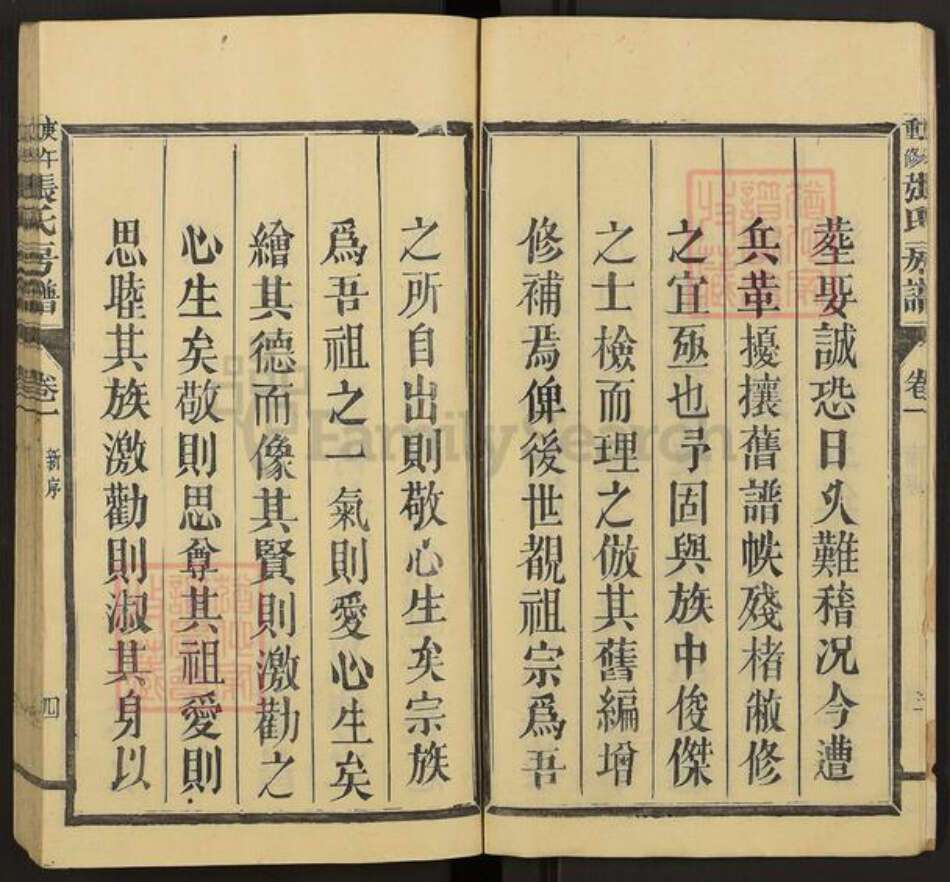 重修張氏房譜
卷一
塟娶誠恐日久難稽况今遭
兵革擾攘舊譜帙殘楮敝修
之宜亟也予固與族中俊傑
之士檢而理之倣其舊編增
修補焉俾後世覩祖宗爲吾
之所自出則敬心生矣宗族
爲吾祖之一氣則愛心生矣
繪其德而像其賢則激勸之
心生矣敬則思尊其祖愛則
思睦其族激勸則淑其身以
庚午
張氏房譜
卷一
新序
四
FamilySearch